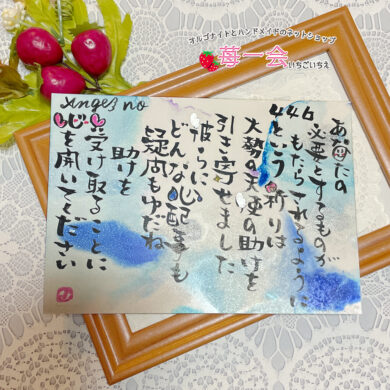 オルゴナイトとハンドメイドのネットショップ
苺一会
いちごいちえ
Angel no
446
あなたの
必要とするものが
もたらされるように
という祈りは
大勢の天使の助けを
引き寄せました
彼らに心配事も
どんな
疑問もゆだね
助けを
受け取ることに
心を開いてください